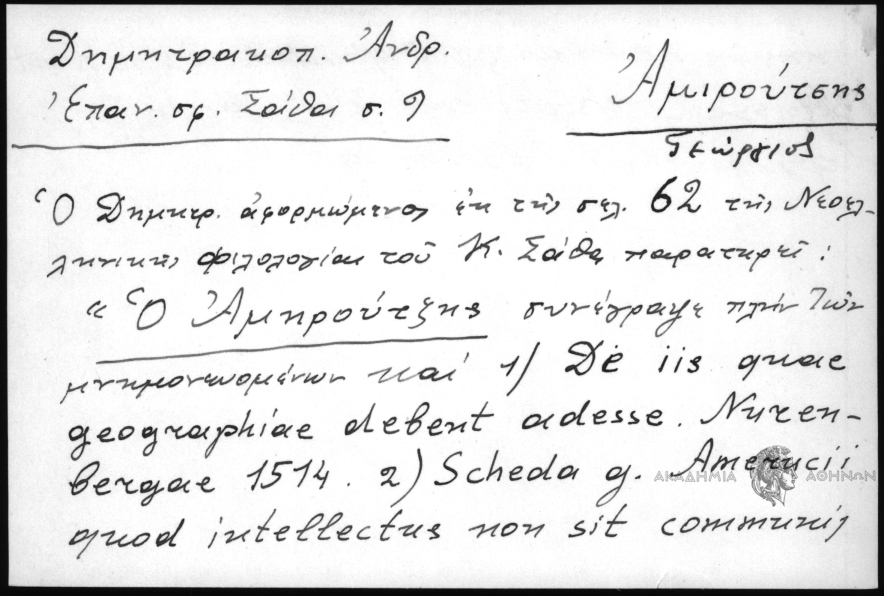 Δημητρακοπ. Ἀνδρ.
Ἐπαν. σφ. Σάθα σ. 9
Ἀμιρούτσης
Γεώργιος
Ὁ Δημητρ. ἀφορμώμενος ἐκ τῆς σελ. 62 τῆς Νεοελ-
ληνικῆς φιλολογίας τοῦ Κ. Σάθα παρατηρεῖ :
« Ὁ Ἀμηρούτζης συνέγραψε πλὴν τῶν
μνημονευομένων καὶ 1) De iis quae
geographiae debent adesse. Nuren-
bergae 1514. 2) Scheda g. Amerucii
quod intellectus non sit communis
ΑΚΑΔΗΜΙΑ ΑΘΗΝΩΝ